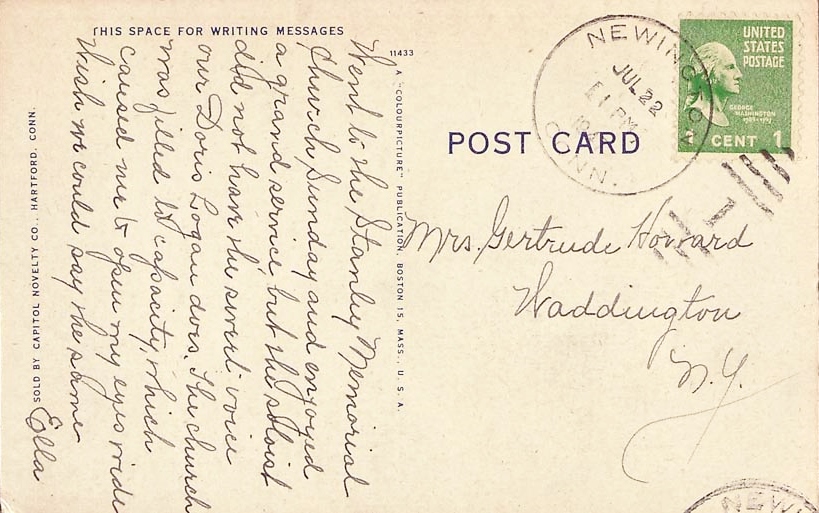 THIS SPACE FOR WRITING MESSAGES
Went to the Stanley Memorial
Church Sunday and enjoyed
a grand service but the soloist
did not have the sweet voice
our Doris Logan does. The church
was filled to capacity, which
caused me to open my eyes wide
Wish we could say the same
Ella
SOLD BY CAPITOL NOVELTY CO., HARTFORD, CONN.
11433
A "COLOURPICTURE" PUBLICATION, BOSTON 15, MASS., U. S. A.
POST CARD
NEWINGTON
JUL 22
PM
CONN.
UNITED
STATES
POSTAGE
GEORGE
WASHINGTON
1 CENT 1
Mrs. Gertrude Howard
Waddington
N.Y.
NEWI